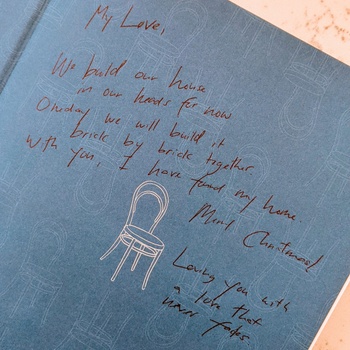 My Love,
We build our house
in our heads for now
One day we will build it
brick by brick together
With you, I have found my home.
Merry Christmas!
Loving you with
a love that
never fades